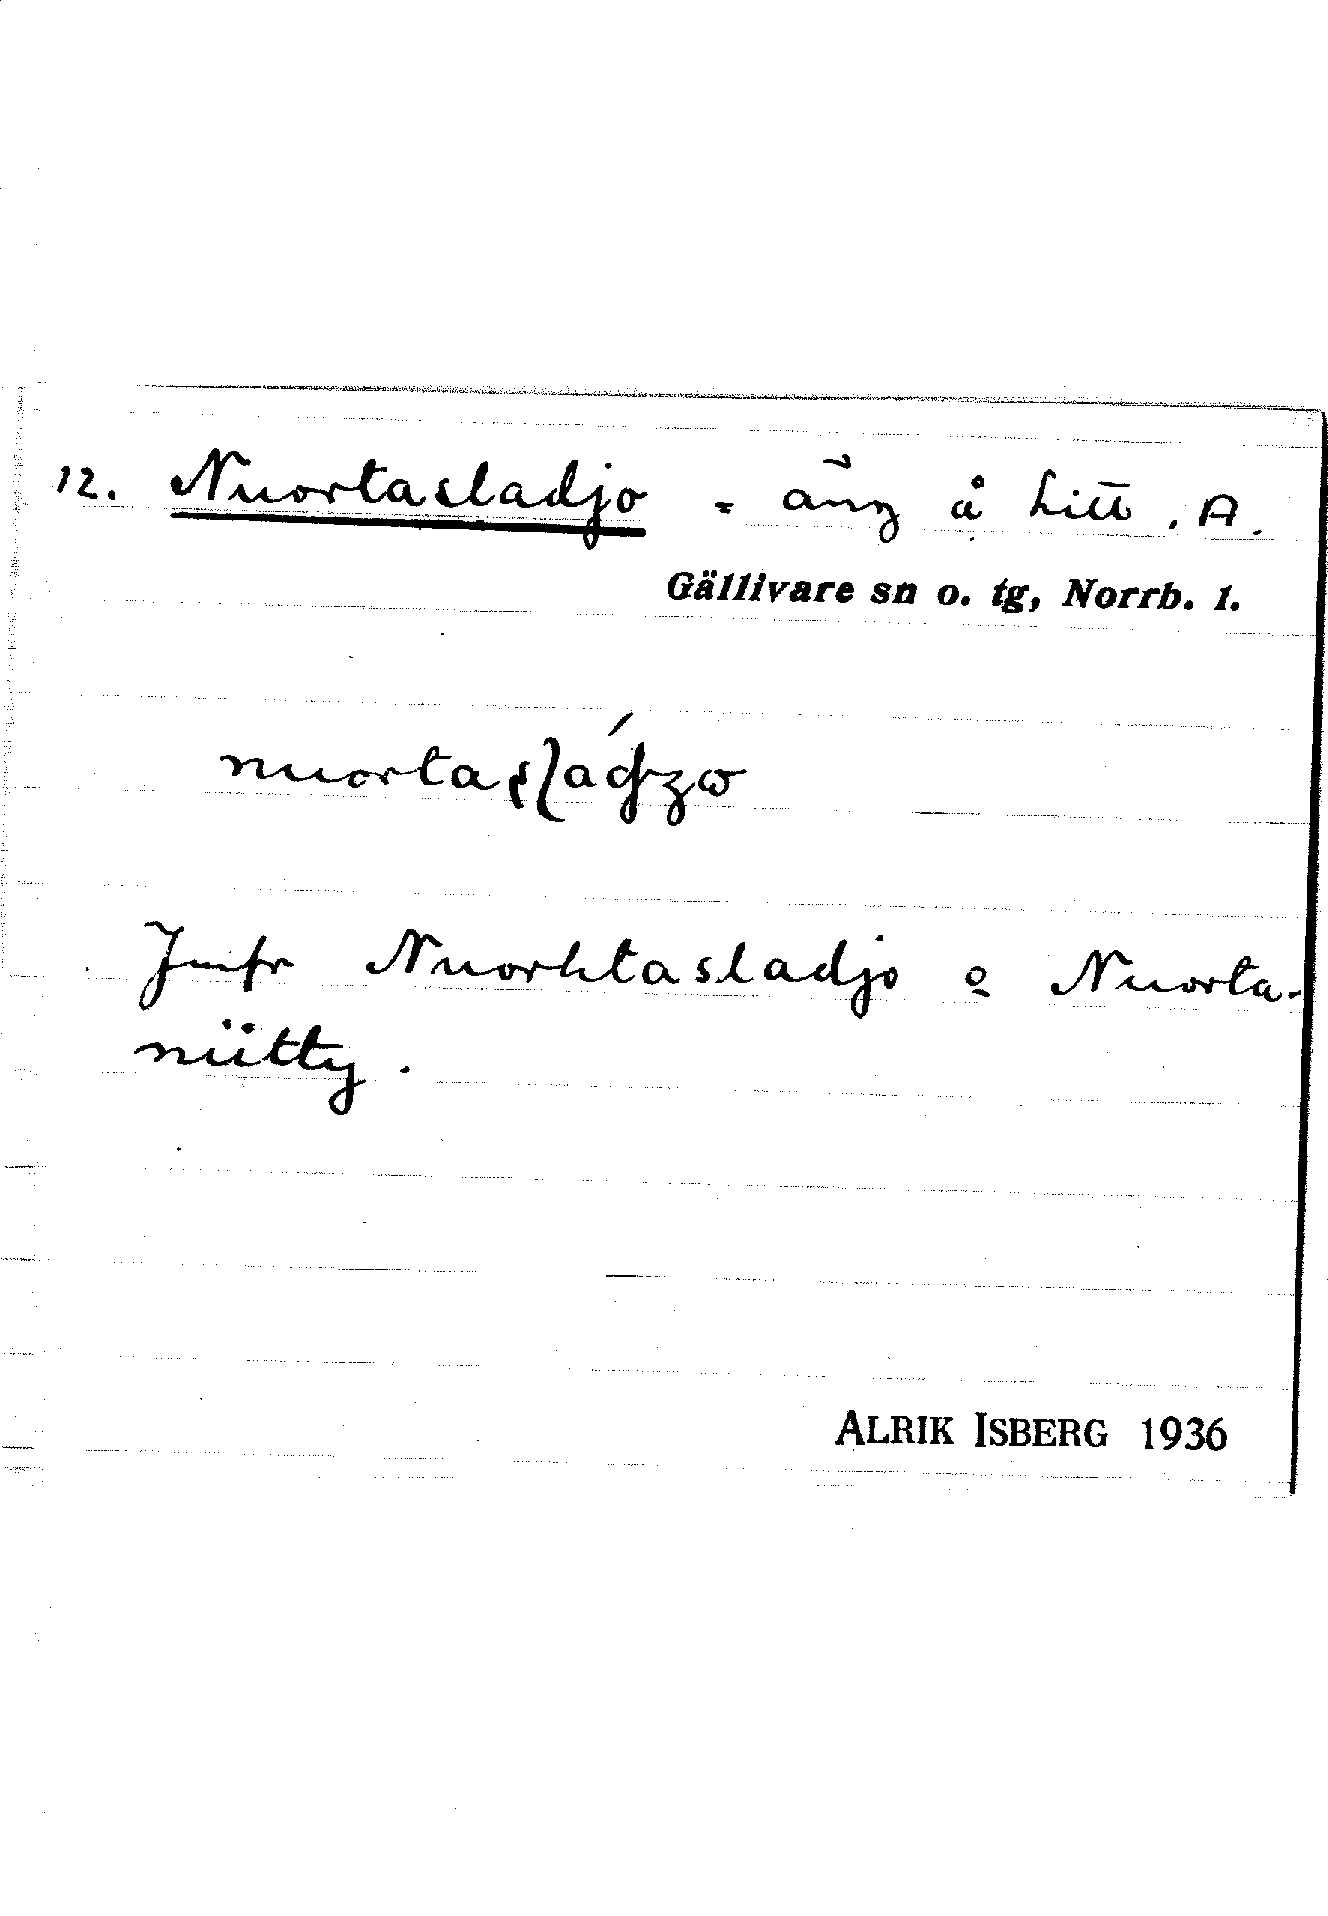 12. Nuortasladjo = äng å Litt. A.
Gällivare sn o. tg, Norrb. l.
Jmfr Nuorhtasladjo o Nuorta-
niitty.
ALRIK ISBERG 1936